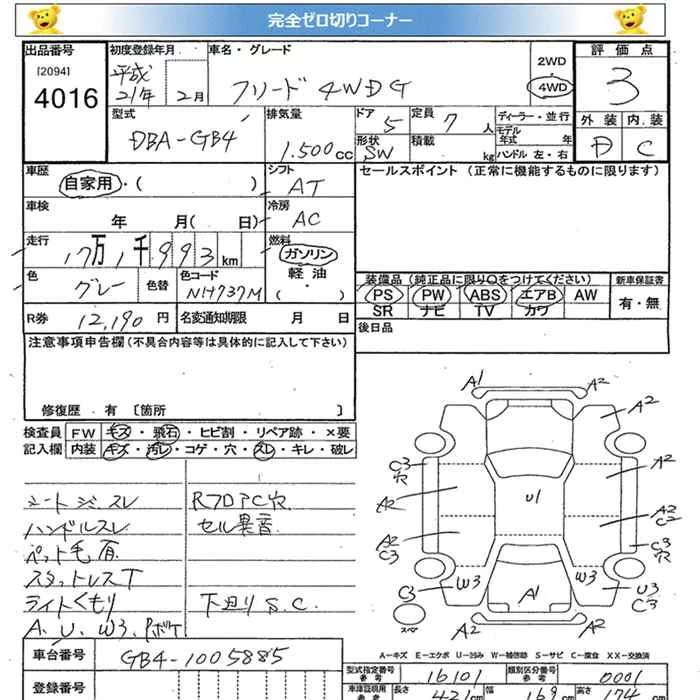 完全ゼロ切りコーナー
出品番号 初度登録年月 車名・グレード 2WD 評価点
[2094] 平成 フリード 4WD G 4WD 3
4016 21年 2月
型式 排気量 ドア 定員 ディーラー・並行 外装 内装
DBA-GB4 1.500cc 5 7人 モデル年式 年 D C
形状 積載
SW kg ハンドル 左・右
車歴 シフト セールスポイント (正常に機能するものに限ります)
自家用・( ) AT
車検 冷房
年 月( 日) AC
走行 燃料
17万1千993km ガソリン
色 色替 色コード 軽油 装備品(純正品に限り○をつけてください) 新車保証書
グレー NH737M ( ) PS PW ABS エアB AW 有・無
SR ナビ TV カワ
R券 12,190円 名変通知期限 月 日 後日品
注意事項申告欄(不具合内容等は具体的に記入して下さい)
修復歴・有〔箇所 〕
検査員 FW キズ・飛石・ヒビ割・リペア跡・×要
記入欄 内装 キズ・汚レ・コゲ・穴・スレ・キレ・破レ
シートジミスレ R7DPC穴
ハンドルスレ セル異音
ペット毛有
スタットレスT
ライトくもり 下廻りS.C.
A、U、W3、Pボケ
A1 A2
A2
C3 穴 A2
A2 U1 A2 C2
A2 C3 C3 穴
W3 W3 U3 C3
C3 A1
スペア A2 A2
A-キズ E-エクボ U-凹み W-補修跡 S-サビ C-腐食 XX-交換済
車台番号 GB4-1005885
型式指定番号 参考 16101 類別区分番号 参考 0001
登録番号 車庫証明用 参考 長さ 421cm 幅 169cm 高さ 174cm